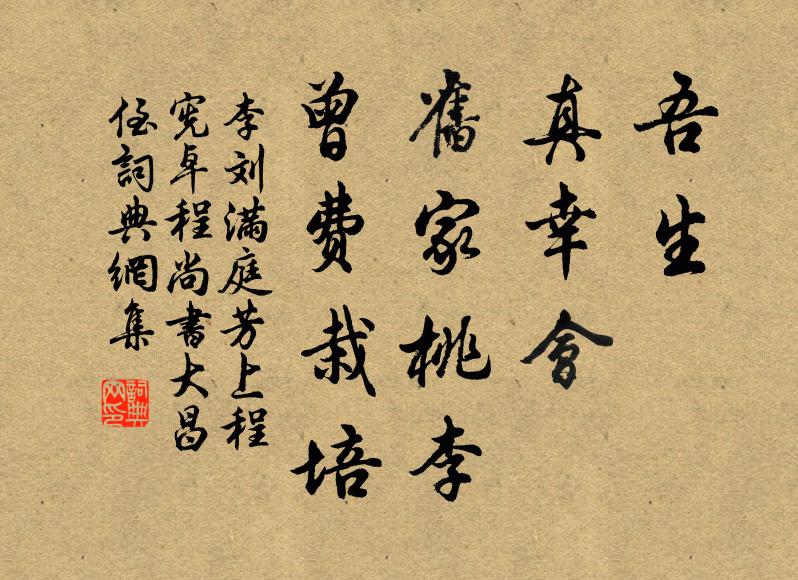 吾生
真幸會
舊家桃李
曾費栽培
李刘满庭芳上程
宪卓程尚書大昌
侄詞典網集
詞典
网印